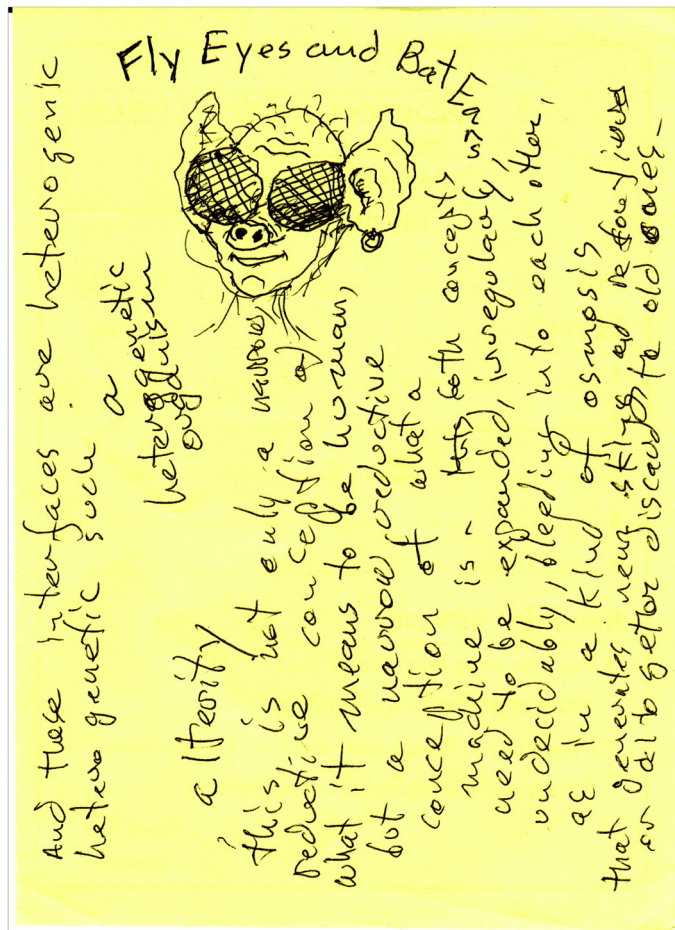 Fly Eyes and Bat Ears
And these interfaces are heterogenic
heterogenetic such a
heterogenetic
organism
alterity
this is not only a narrow,
reductive conception of
what it means to be human,
but a narrow, reductive
conception of what a
machine is - both concepts
need to be expanded, irregularly,
undecidably, bleeding into each other,
as in a kind of osmosis
that generates new skins and
old ones -